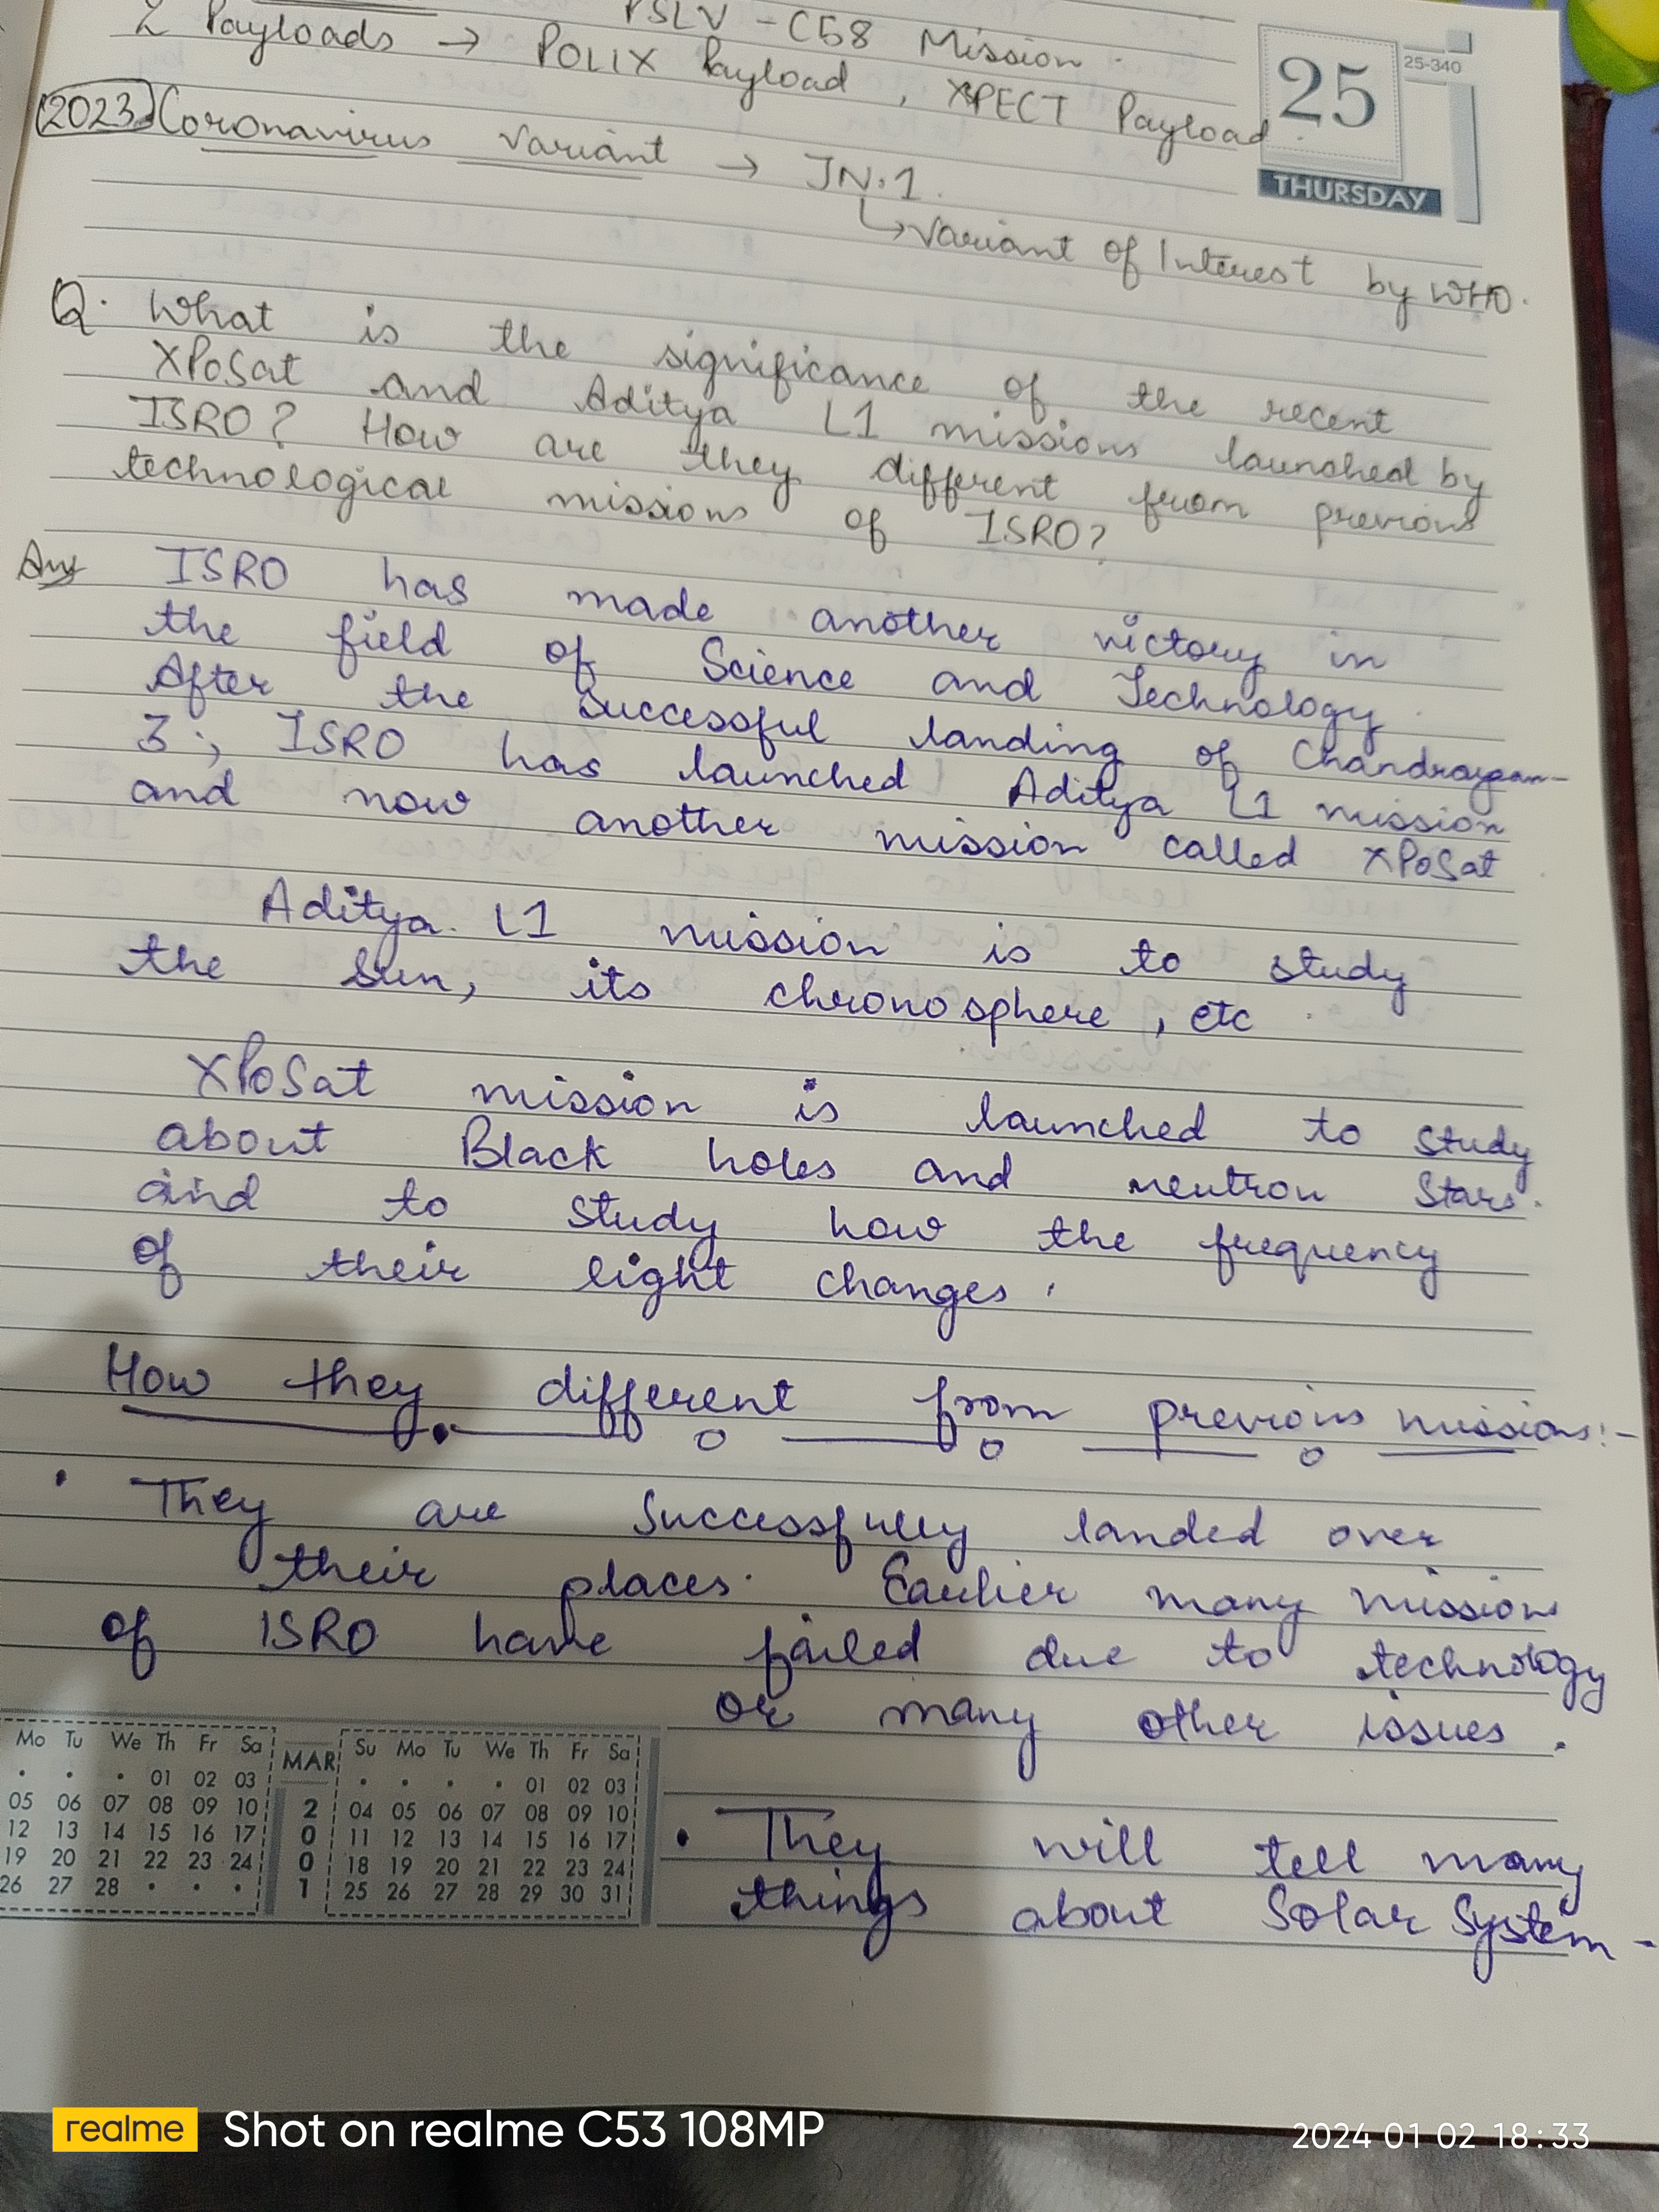 PSLV - C58 Mission.
2 Payloads → POLIX Payload, XSPECT Payload.
25
25-340
THURSDAY
2023 Coronavirus variant → JN.1.
↳ Variant of Interest by WHO.
Q. What is the significance of the recent
XPoSat and Aditya L1 missions launched by
ISRO? How are they different from previous
technological missions of ISRO?
Ans ISRO has made another victory in
the field of Science and Technology.
After the successful landing of Chandrayan-
3, ISRO has launched Aditya L1 mission
and now another mission called XPoSat
Aditya L1 mission is to study
the Sun, its chronosphere, etc.
XPoSat mission is launched to study
about Black holes and neutron stars.
and to study how the frequency
of their light changes.
How they different from previous missions:-
• They are successfully landed over
their places. Earlier many missions
of ISRO have failed due to technology
or many other issues.
• They will tell many
things about Solar System-
Mo Tu We Th Fr Sa
• • • 01 02 03
05 06 07 08 09 10
12 13 14 15 16 17
19 20 21 22 23 24
26 27 28 • • •
MAR
2001
Su Mo Tu We Th Fr Sa
• • • • 01 02 03
04 05 06 07 08 09 10
11 12 13 14 15 16 17
18 19 20 21 22 23 24
25 26 27 28 29 30 31
realme Shot on realme C53 108MP
2024 01 02 18:33